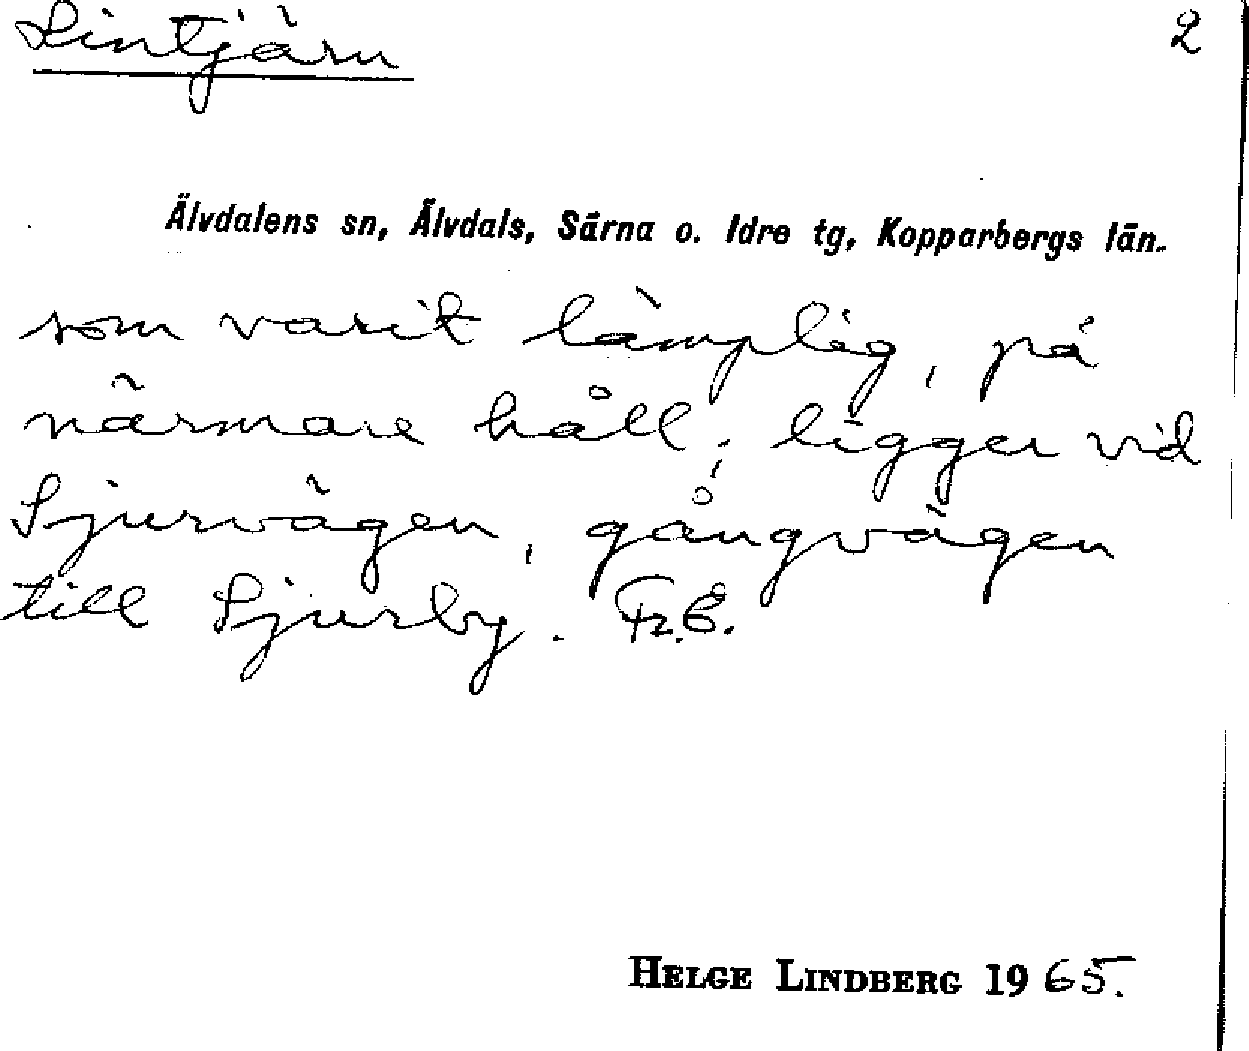 Lintjärn 2
Älvdalens sn, Älvdals, Särna o. Idre tg, Kopparbergs län.
som varit lämplig, på
närmare håll; ligger vid
Sjurvägen, gångvägen
till Sjurby.
HELGE LINDBERG 1965.